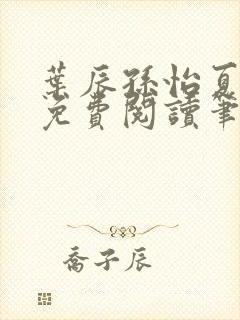 葉辰孫怡夏
免費閱讀筆
喬子辰